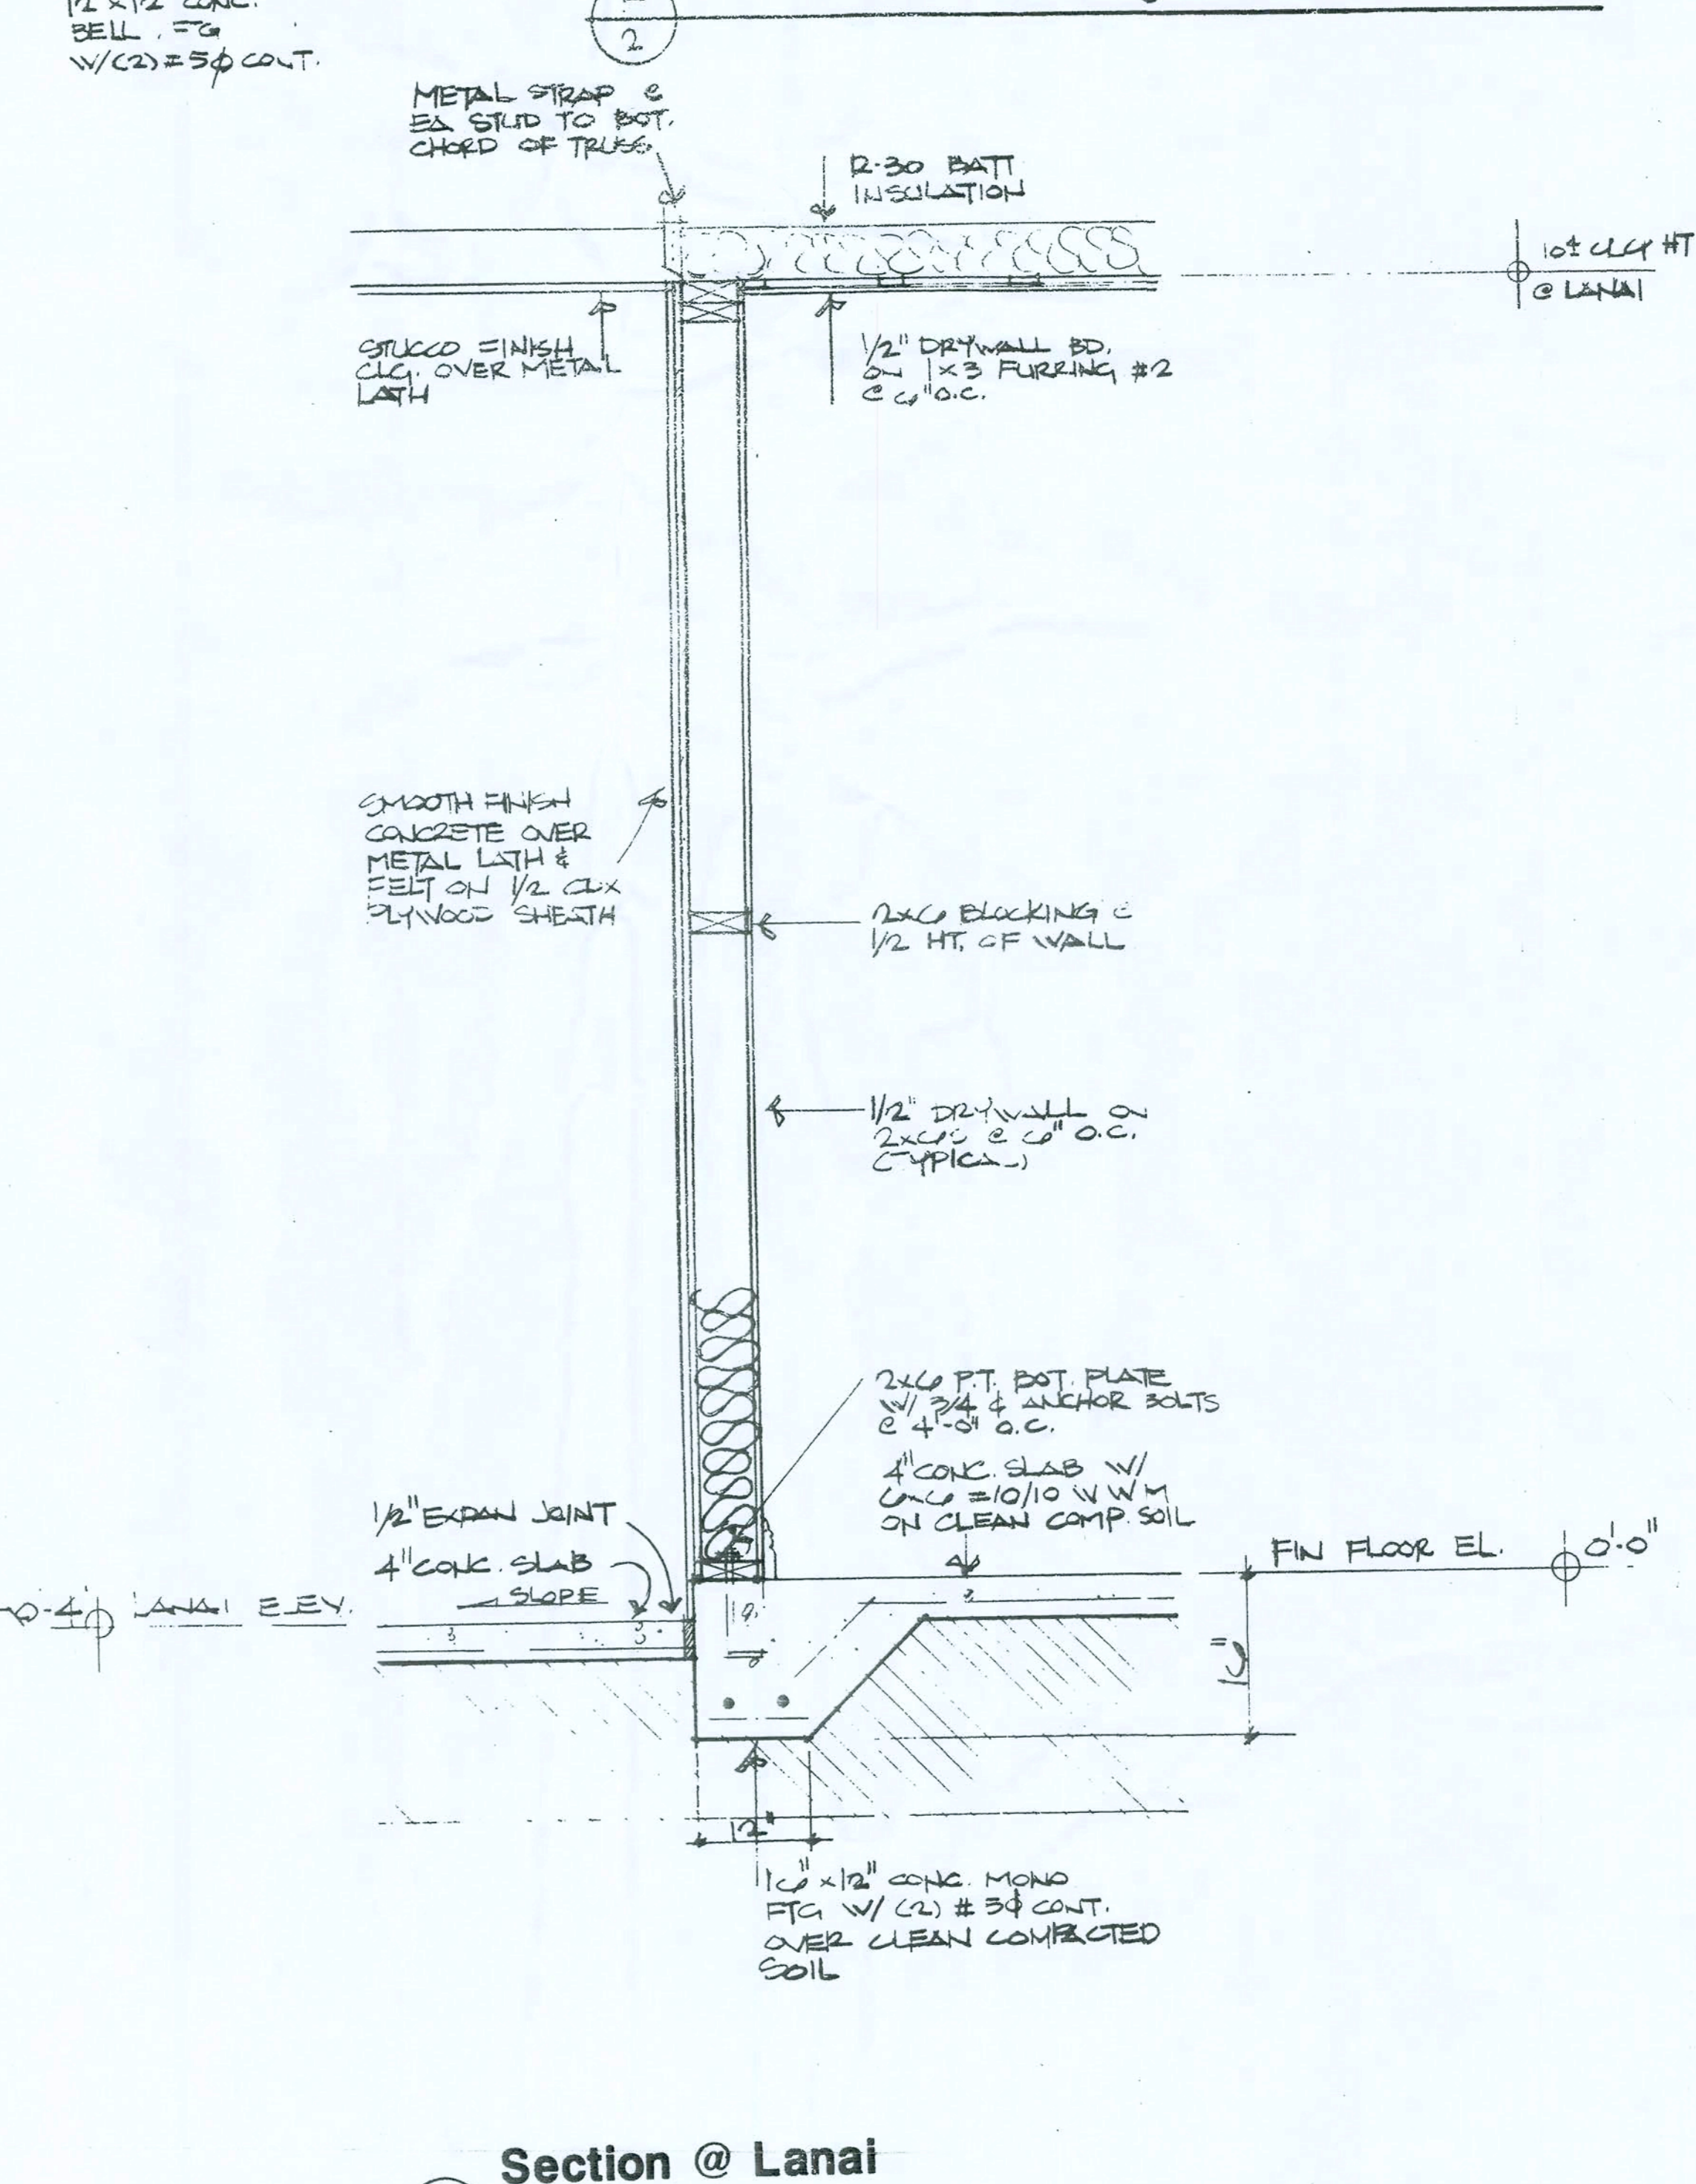 12 x 12 CONC.
BELL. FG
W/(2) #5ϕ CONT.
2
METAL STRAP @
EA STUD TO BOT.
CHORD OF TRUSS
R-30 BATT
INSULATION
10± CLG HT
@ LANAI
STUCCO FINISH
CLG. OVER METAL
LATH
1/2" DRYWALL BD.
ON 1x3 FURRING #2
@ 6" O.C.
SMOOTH FINISH
CONCRETE OVER
METAL LATH &
FELT ON 1/2 CDX
PLYWOOD SHEATH
2x6 BLOCKING @
1/2 HT. OF WALL
1/2" DRYWALL ON
2x6S @ 6" O.C.
(TYPICAL)
2x6 P.T. BOT. PLATE
W/ 3/4 ¢ ANCHOR BOLTS
@ 4'-0" O.C.
4" CONC. SLAB W/
6x6 #10/10 WWM
ON CLEAN COMP. SOIL
1/2" EXPAN JOINT
4" CONC. SLAB
SLOPE
FIN FLOOR EL.
0'-0"
-0-4
LANAI ELEV.
16"
12"
16" x 12" CONC. MONO
FTG W/ (2) # 5ϕ CONT.
OVER CLEAN COMPACTED
SOIL
Section @ Lanai